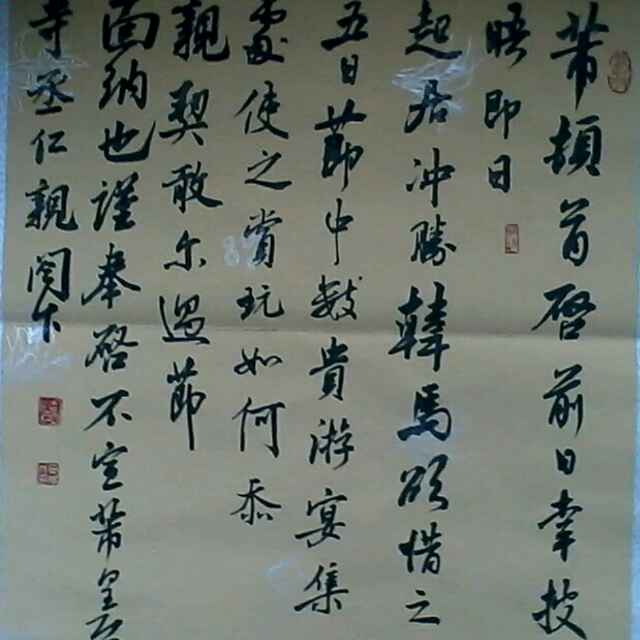 芾頓首启前日幸披
晤即日
起居冲勝韓馬欲惜之
五日節中數貴游宴集
處使之賞玩如何忝
親契敢尔過節
面納也謹奉啓不宣芾皇恐
寺丞仁親閤下